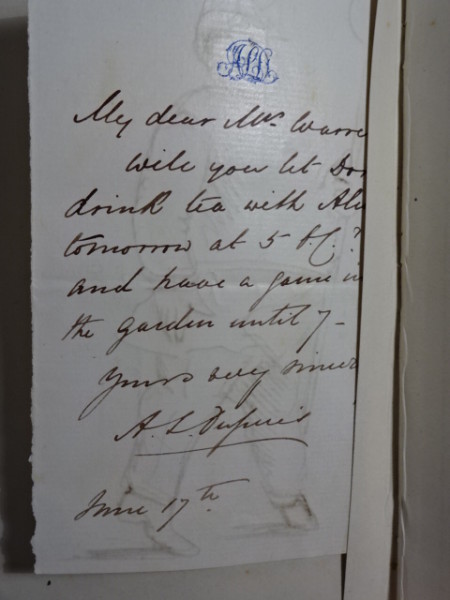 My dear Mrs Warre
will you let Do
drink tea with Al
tomorrow at 5 o.C.?
and have a game in
the garden until 7-
yours very sincer
A.L. Dupuis
June 17th